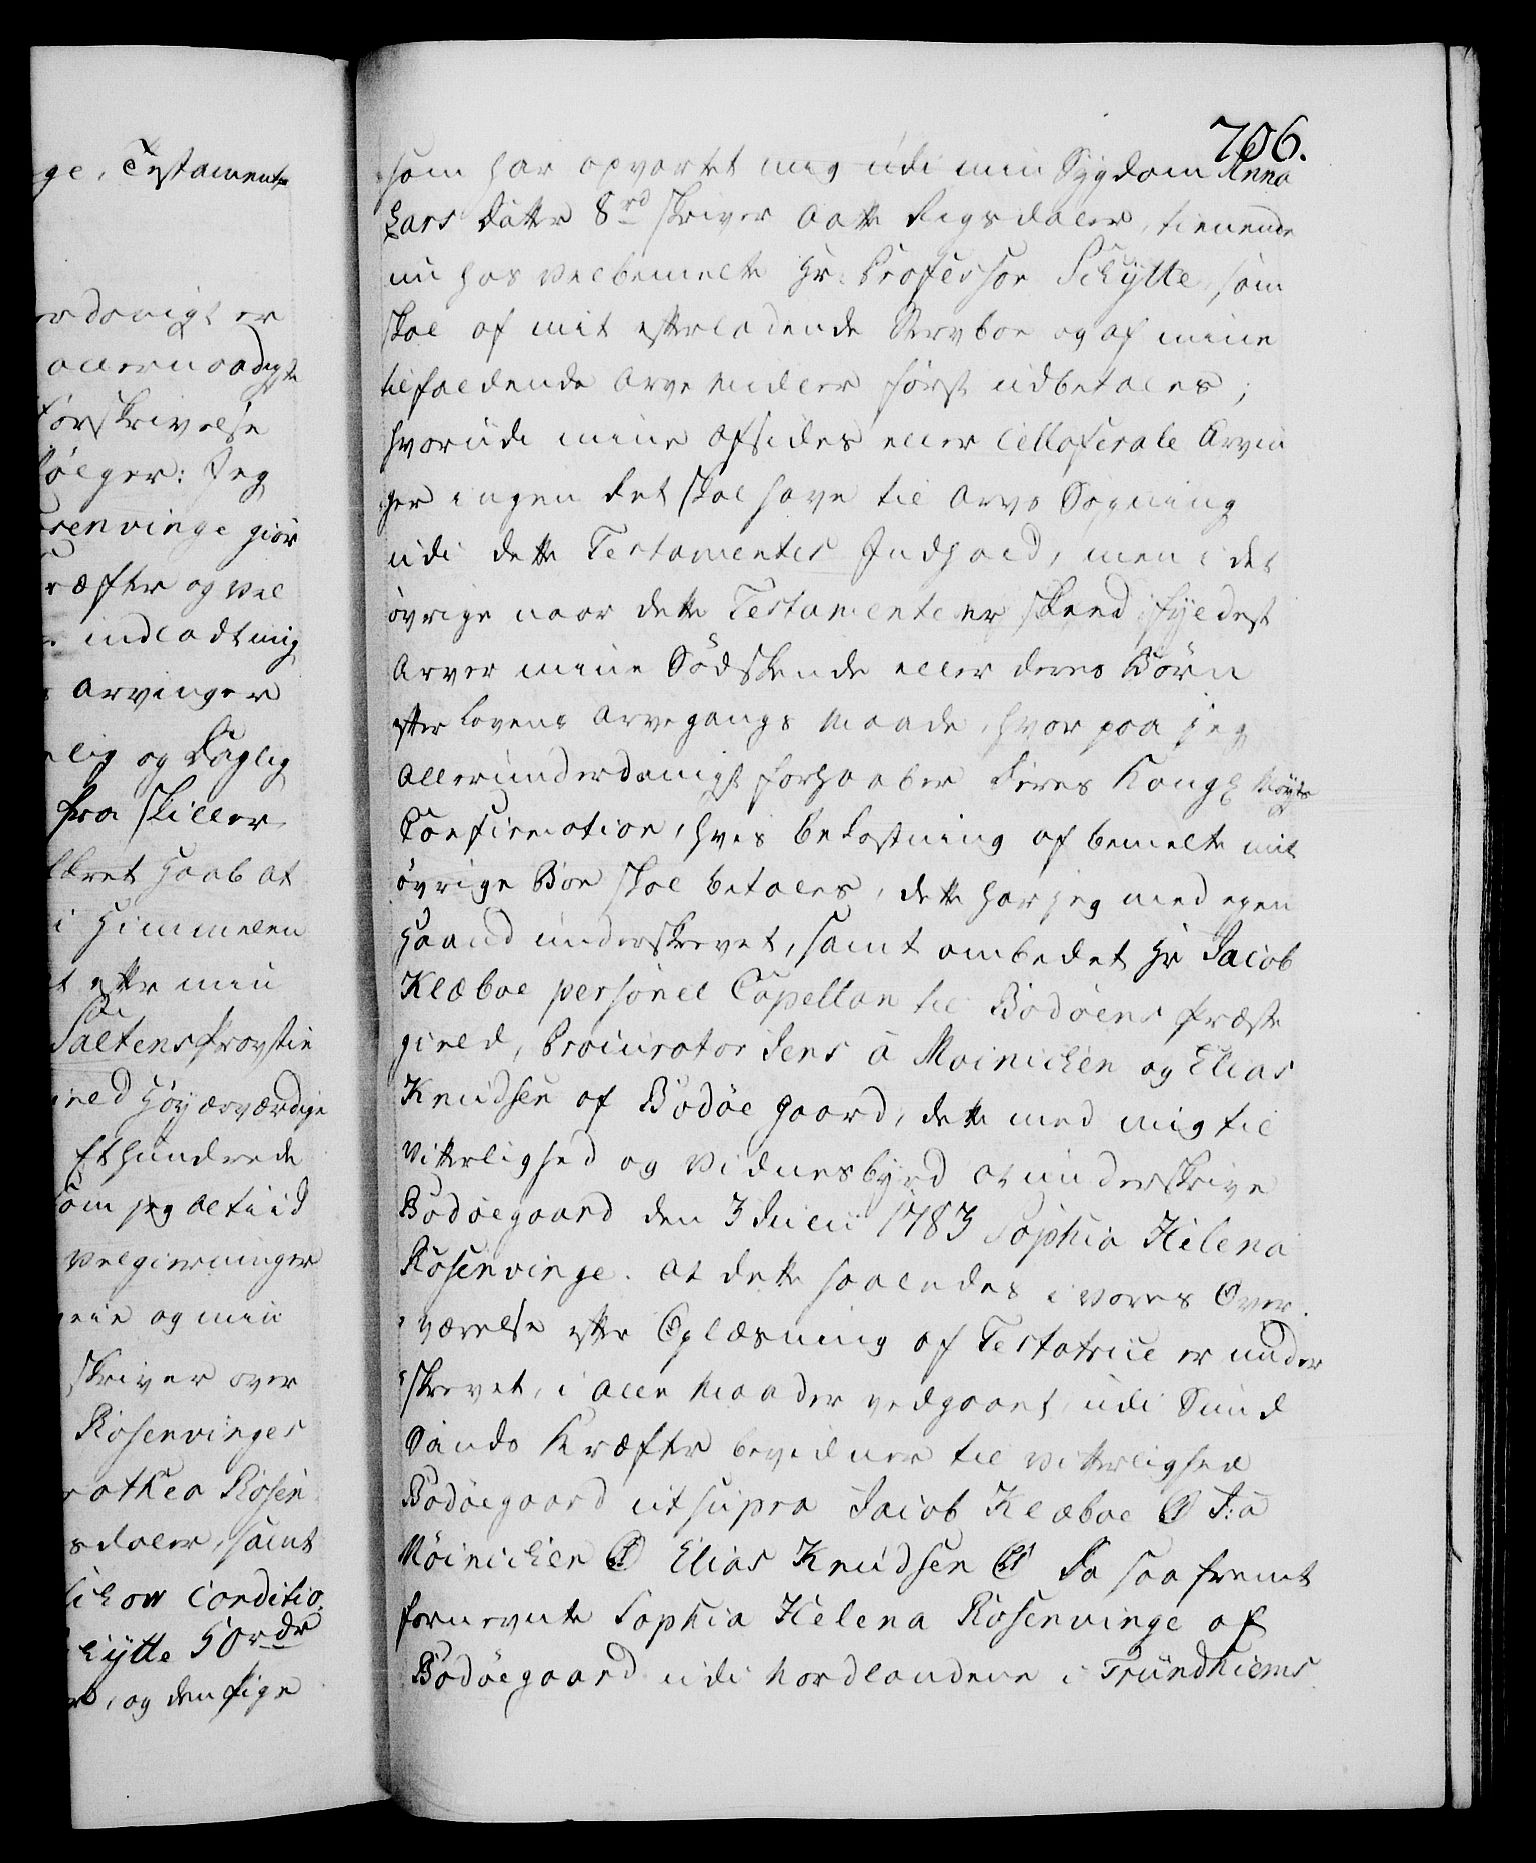 ge, Testament
ordanigt er
allernaadigste
forskrivelse
følger: Jeg
osenvinge giør
ræfter og vel
indladt mig
Arvinger
elig og Daglig
fra skiller
sikret Haab at
i Himmelen
at efter min
Saltens Provstie
med Høyærværdige
Et hundrede
som jeg altiid
velgierninger
og min
skriver over
Rosenvinges
rothea Rosen
sdaler, samt
ichow Conditio
kytte 50 rdr
og den Pige
706.
som har opvartet mig udi min Sygdom Anna
Lars Datter 8 rd skriver Aatte Rigsdaler, tienende
nu hos velbemelte Hr. Professor Schytte, som
skal af mit efterladende Stervboe og af mine
tilfaldende Arve Midler først udbetales;
hvorudi mine Afsides eller Collaterale Arvin
ger ingen det skal have til Arvs Søgning
udi dette Testamentes Indhold, men i det
øvrige naar dette Testamente er skeed fyldest
Arver mine Sødskende eller deres Børn
efter Lovens Arvegangs Maade, hvor paa jeg
Allerunderdanigst forhaaber Deres Kongl. Mayts
Confirmation, hvis Bekostning af bemelte mit
øvrige Boe skal betales, dette har jeg med egen
Haand underskrevet, samt ombedet Hr Jacob
Klæboe personel Capellan til Bodøens Præste
gield, Procurator Jens á Moinichen og Elias
Knudsen af Bodøe gaard, dette med mig til
Vitterlighed og Vidnesbyrd at underskrive
Bodøegaard den 3 Julii 1783 Sophia Helena
Rosenvinge. At dette saaledes i vores Over
værelse efter Oplæsning af Testatrice er under
skrevet, i alle Maader vedgaaet, udi Sund
Sands Kræfter bevidner til Vitterlighed
Bodøegaard ut supra Jacob Klæboe J: á
Möinichen Elias Knudsen Da saafremt
fornevnte Sophia Helena Rosenvinge af
Bodøegaard udi Nordlandene i Trundhiems